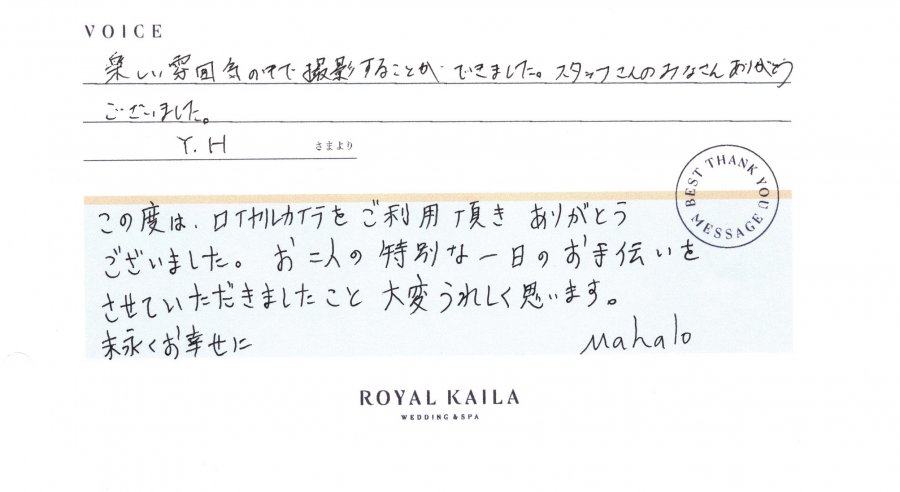 VOICE
楽しい雰囲気の中で撮影することができました。スタッフさんのみなさんありがとう
ございました。
Y.H さまより
BEST THANK YOU MESSAGE
この度は、ロイヤルカイラをご利用頂き ありがとう
ございました。 お二人の特別な一日のお手伝いを
させていただきましたこと 大変うれしく思います。
末永くお幸せに Mahalo
ROYAL KAILA
WEDDING & SPA